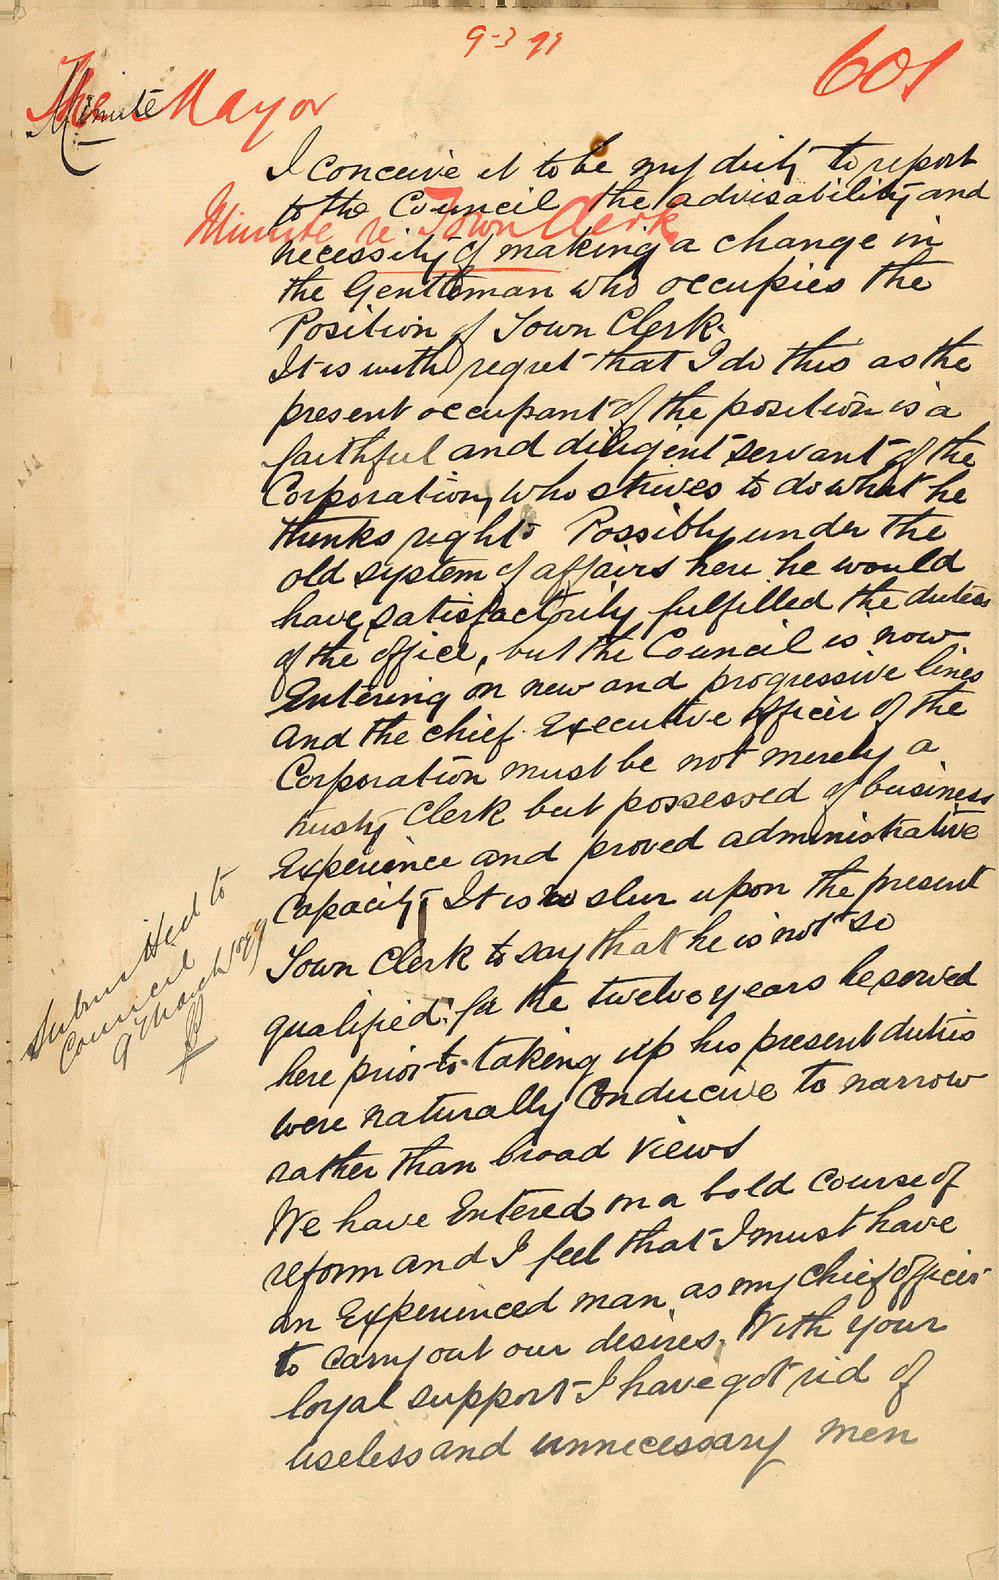 9-3-99
601
The Mayor
Minute
Minute re Town Clerk
I conceive it to be my duty to report
to the Council the advisability and
necessity of making a change in
the Gentleman who occupies the
Position of Town Clerk.
It is with regret that I do this as the
present occupant of the position is a
faithful and diligent servant of the
Corporation, who strives to do what he
thinks right. Possibly under the
old system of affairs here he would
have satisfactorily fulfilled the duties
of the office, but the Council is now
Entering on new and progressive lines
and the chief Executive officer of the
Corporation must be not merely a
trusty Clerk but possessed of business
Experience and proved administrative
Capacity. It is no slur upon the present
Town Clerk to say that he is not so
qualified. for the twelve years he served
here prior to taking up his present duties
were naturally Conducive to narrow
rather than broad views
We have Entered on a bold course of
reform and I feel that I must have
an Experienced man, as my chief officer
to carry out our desires. With your
loyal support I have got rid of
useless and unnecessary men
Submitted to
Council
9 March 1899